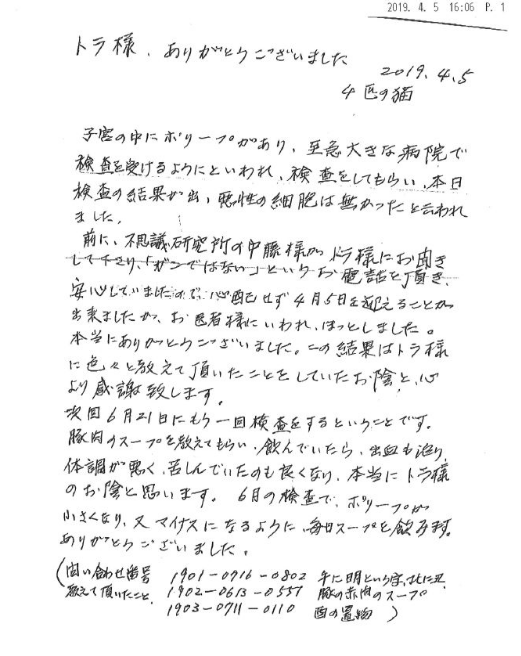 2019. 4. 5 16:06 P. 1
トラ様、ありがとうございました
2019.4.5
4匹の猫
子宮の中にポリープがあり、至急大きな病院で
検査を受けるようにといわれ、検査をしてもらい、本日
検査の結果が出、悪性の細胞は無かったと云われ
ました。
前に、不思議研究所の中藤様からトラ様にお聞き
して下さり、「ガンではない」というお電話を頂き、
安心していましたので、心配せず4月5日を迎えることが
出来ましたが、お医者様にいわれ、ほっとしました。
本当にありがとうございました。この結果はトラ様
に色々と教えて頂いたことをしていたお陰と、心
より感謝致します。
次回6月21日にもう一回検査をするということです。
豚肉のスープを教えてもらい、飲んでいたら、出血も治り、
体調が悪く、苦しんでいたのも良くなり、本当にトラ様
のお陰と思います。6月の検査で、ポリープが
小さくなり、又マイナスになるように、毎日スープを飲みます。
ありがとうございました。
(問い合わせ番号 1901-0716-0802 手に明という字、
教えて頂いたこと、 1902-0613-0557 豚の赤肉のスープ
1903-0711-0110 酉の置物 )